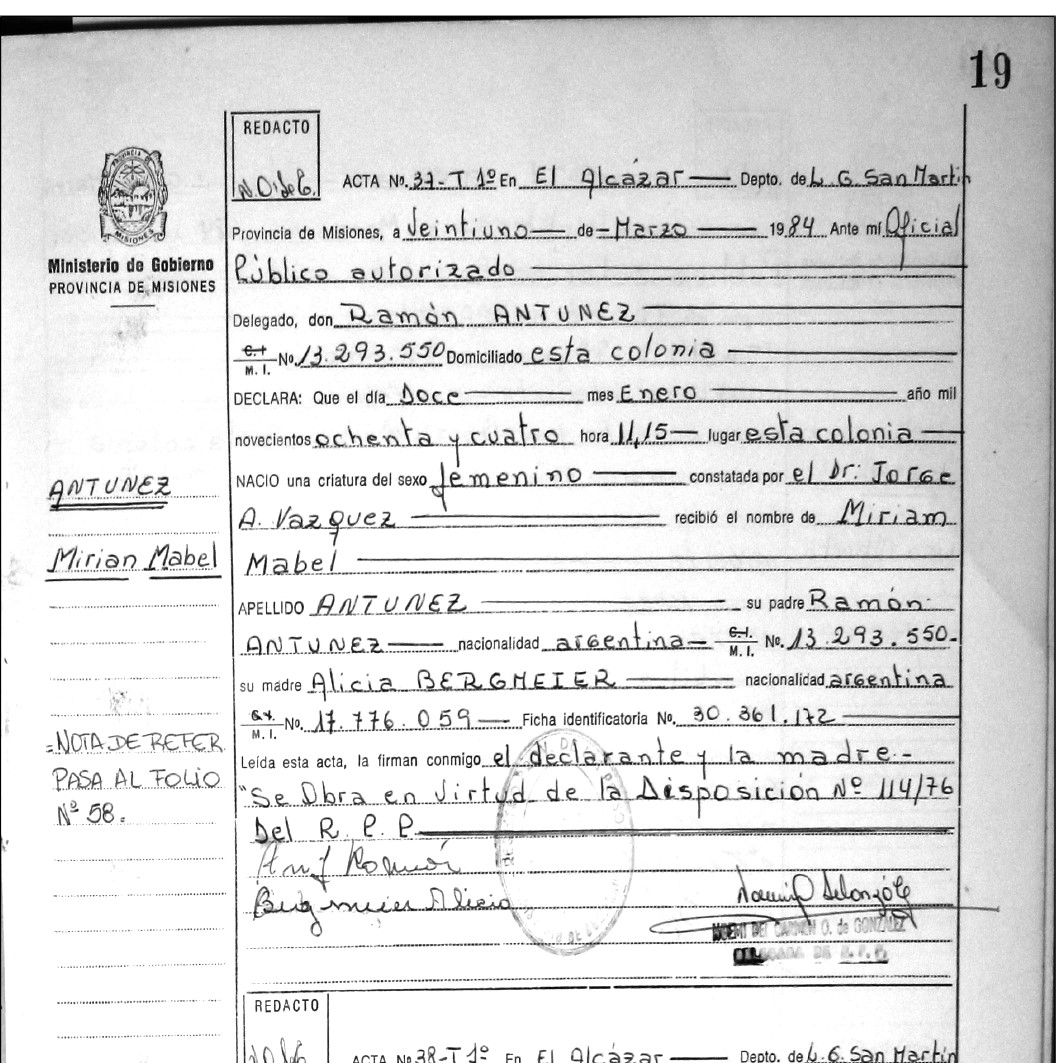 19
REDACTO
N.O. de G.
ACTA No. 37-T 1º En El Alcázar Depto. de L. G. San Martin
Provincia de Misiones, a Veintiuno de Marzo 1984 Ante mí Oficial
Público autorizado
PROVINCIA DE
MISIONES
Ministerio de Gobierno
PROVINCIA DE MISIONES
Delegado, don Ramón ANTUNEZ
C.I. M.I. No. 13.293.550 Domiciliado esta colonia
DECLARA: Que el día Doce mes Enero año mil
novecientos ochenta y cuatro hora 11,15 lugar esta colonia
ANTUNEZ
NACIO una criatura del sexo femenino constatada por el Dr: Jorge
A. Vazquez recibió el nombre de Miriam
Mirian Mabel
Mabel
APELLIDO ANTUNEZ su padre Ramón
ANTUNEZ nacionalidad argentina C.I. M.I. No. 13.293.550.
su madre Alicia BERGMEIER nacionalidad argentina
C.I. M.I. No. 17.776.059 Ficha identificatoria No. 30.361.172
=NOTA DE REFER
PASA AL FOLIO
Nº 58.
Leída esta acta, la firman conmigo el declarante y la madre.-
"Se Obra en Virtud de la Disposición Nº 114/76
Del R. P. P.
Ant Ramón
Bergmeier Alicia
NOEMI DEL CARMEN O. de GONZALEZ
DELEGADA DE R. P. P.
REDACTO
N.O. de G.
ACTA No. 38-T 1º En El Alcázar Depto. de L. G. San Martin